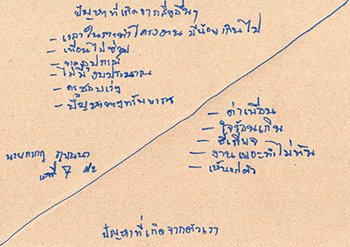 ปัญหาที่เกิดจากสิ่งอื่นๆ
– เวลาในการทำโครงงานมีน้อยเกินไป
– เพื่อนไม่ช่วย
– ขาดอุปกรณ์
– ไม่มีงบประมาณ
– ครูชอบเร่ง
– ปัญหาทางทรัพยากร
– ด่าเพื่อน
– ใจร้อนเกิน
– ขี้เกียจ
– งานเยอะทำไม่ทัน
– เห็นแก่ตัว
นาย
เลขที่ 7
ปัญหาที่เกิดจากตัวเรา